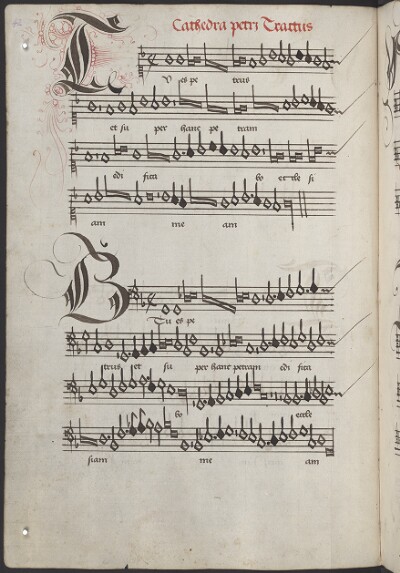 Cathedra petri Tractus
T U es pe trus
et su per hanc pe tram
edi fica bo eccle si
am me am
B Tu es pe
trus et su per hanc petram edi fica
bo eccle
siam me am